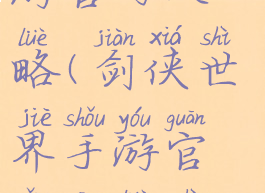 lüè jiàn xiá shì
略(剑侠世
jiè shǒu yóu guān
界手游官